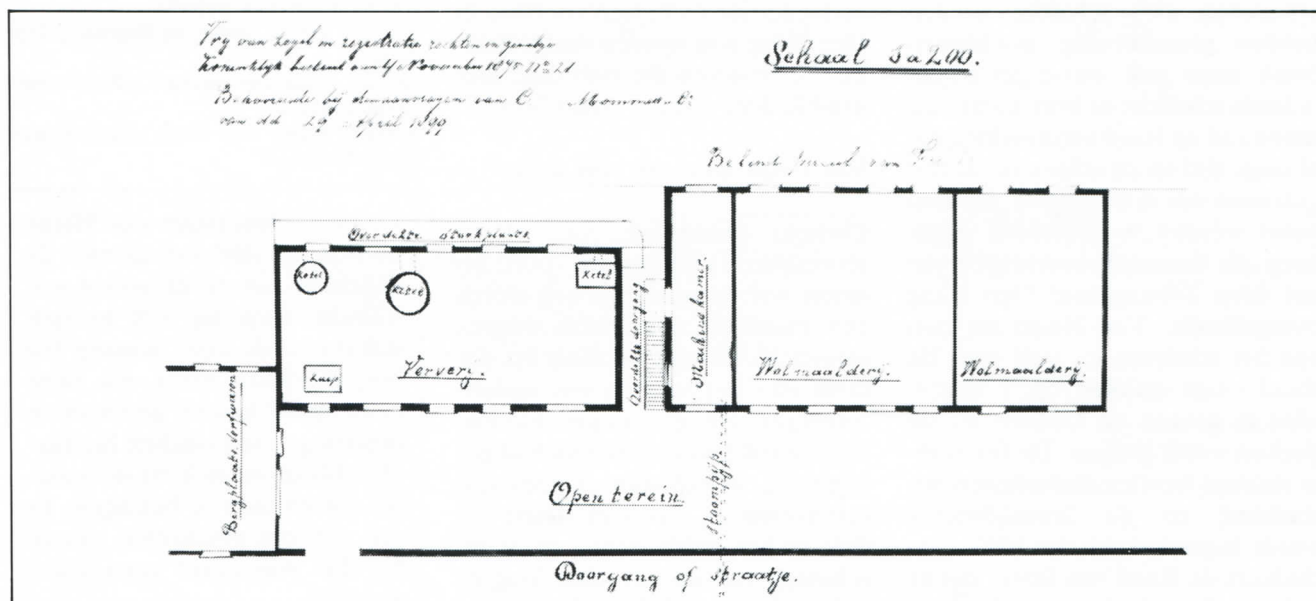 Vrij van zegel en registratie rechten ingevolge
Koninklijk besluit van 4 November 1875 No 21
Behoorende bij de aanvragen van C. Mommers & Co
van dd 29 April 1899
Schaal 1 a 200.
Belend perceel van
Overdekte stookplaats
Ketel
Ketel
Ketel
Kuip
Ververij.
Overdekte doorgang
Machine kamer.
Wolmaalderij.
Wolmaalderij.
Bergplaats Verfwaren
Open terein.
stoompijp
Doorgang of straatje.